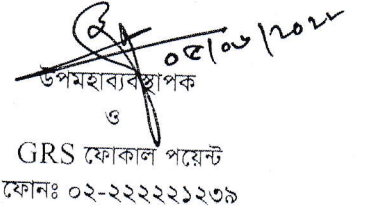 ০৫/০৬/২০২২
উপমহাব্যবস্থাপক
ও
GRS ফোকাল পয়েন্ট
ফোনঃ ০২-২২২২২১২৩৯